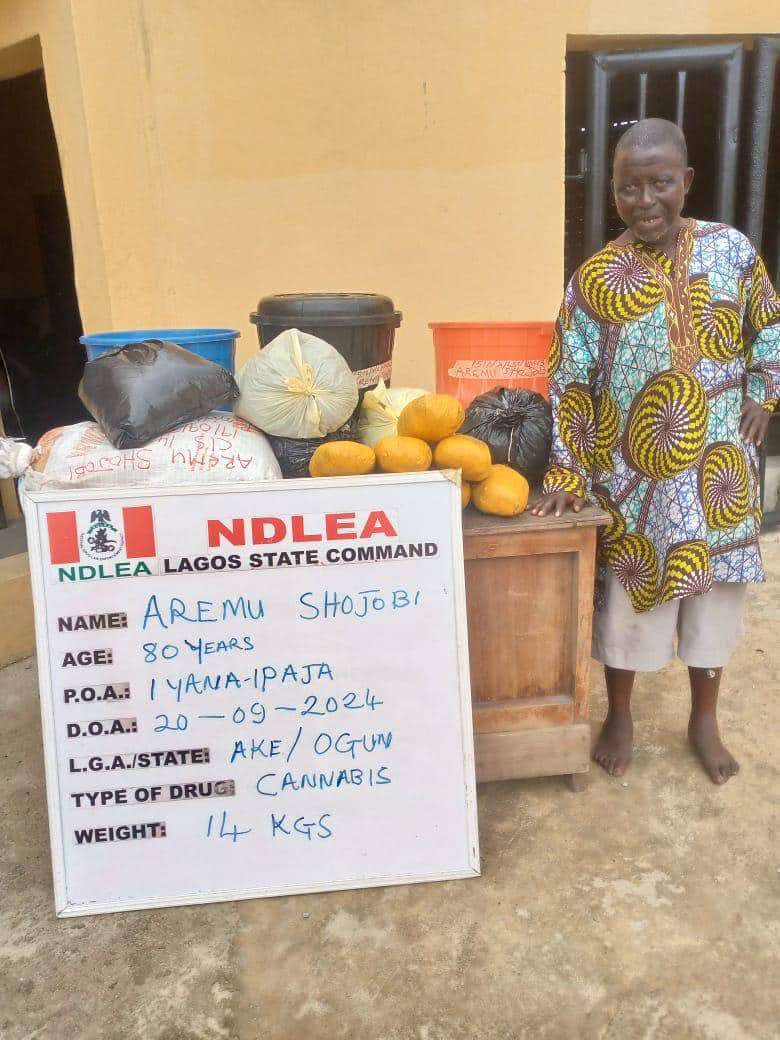 AREMU
SHOJOBI
AREMU SHOJOBI
NDLEA
NDLEA LAGOS STATE COMMAND
NAME: AREMU SHOJOBI
AGE: 80 YEARS
P.O.A.: IYANA-IPAJA
D.O.A.: 20-09-2024
L.G.A./STATE: AKE/OGUN
TYPE OF DRUG: CANNABIS
WEIGHT: 14 KGS